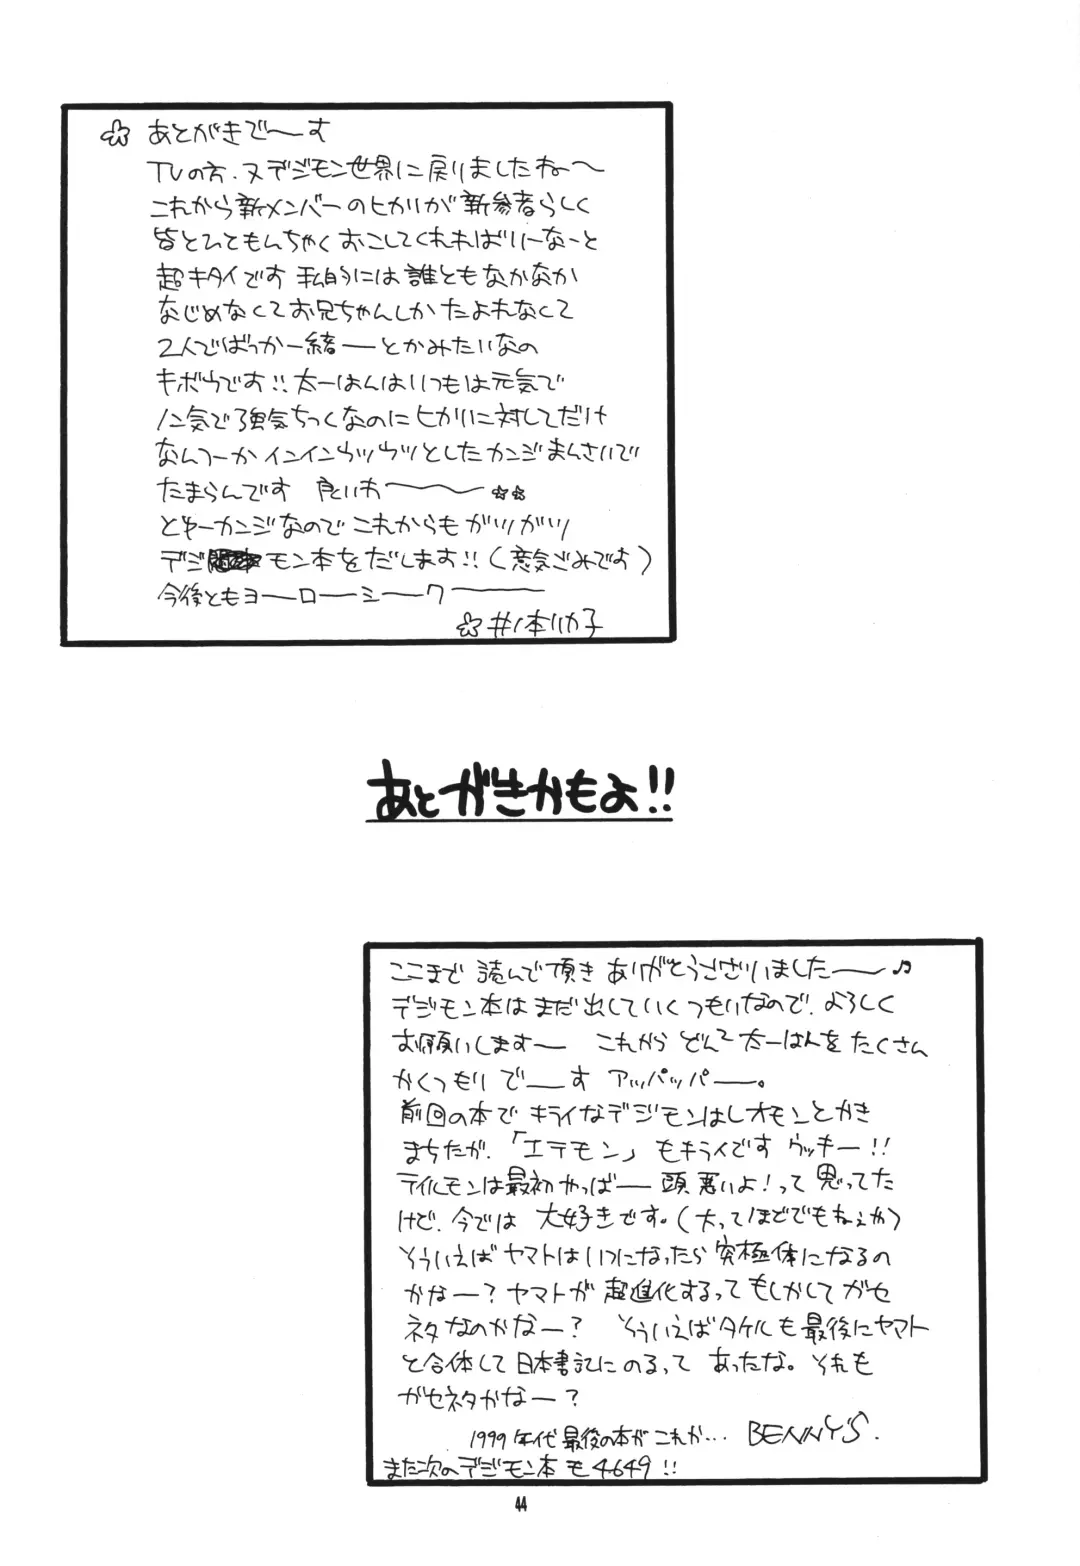 ☆ あとがきで〜す
TVの方、又デジモン世界に戻りましたね〜
これから新メンバーのヒカリが新参者らしく
皆とひともんちゃくおこしてくれればいーなーと
超キタイです 私的には誰ともなかなか
なじめなくてお兄ちゃんしかたよれなくて
2人でばっか一緒──とかみたいなの
キボウです!! 太一はんはいつもは元気で
ノン気で強気ちっくなのにヒカリに対してだけ
なんつーかインインウツウツとしたカンジまんさいで
たまらんです 良いわ〜〜〜 ☆☆
とゆーカンジなのでこれからもガツガツ
デジモン本をだします!!(意気ごみですよ)
今後ともヨーローシーク───
☆井ノ本リカ子
あとがきかもよ!!
ここまで読んで頂きありがとうございました──♫
デジモン本はまだ出していくつもりなので、よろしく
お願いします〜 これからどんどん太一はんをたくさん
かくつもりで──す アッパッパー。
前回の本でキライなデジモンはレオモンとかき
まちたが、「エテモン」もキライです ウッキー!!
テイルモンは最初やっぱ──頭悪いよ!って思ってた
けど、今では大好きです。(太ってほどでもねぇか)
そういえばヤマトはいつになったら究極体になるの
かなー?ヤマトが超進化するってもしかしてガセ
ネタなのかなー? そういえばタケルも最後にヤマト
と合体して日本書記にのるってあったな。それも
ガセネタかなー?
1999年代最後の本がこれか… BENNY'S.
また次のデジモン本も4649!!
44